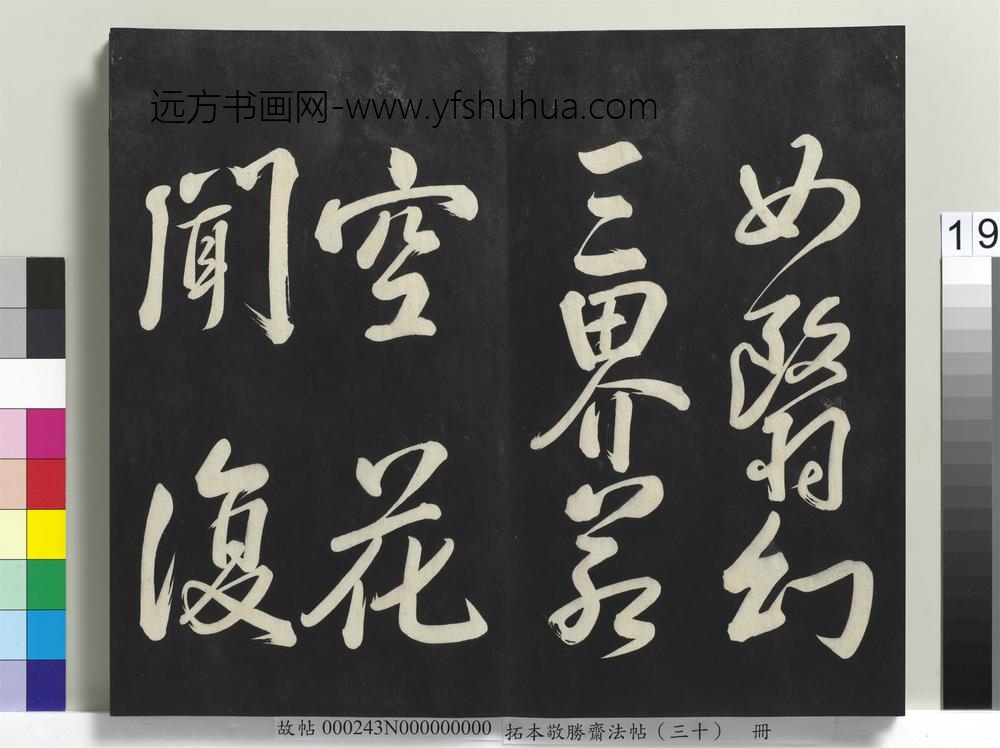 远方书画网-www.yfshuhua.com
如翳幻
三界若
空花
聞復
19
故帖 000243N000000000 拓本敬勝齋法帖（三十） 冊